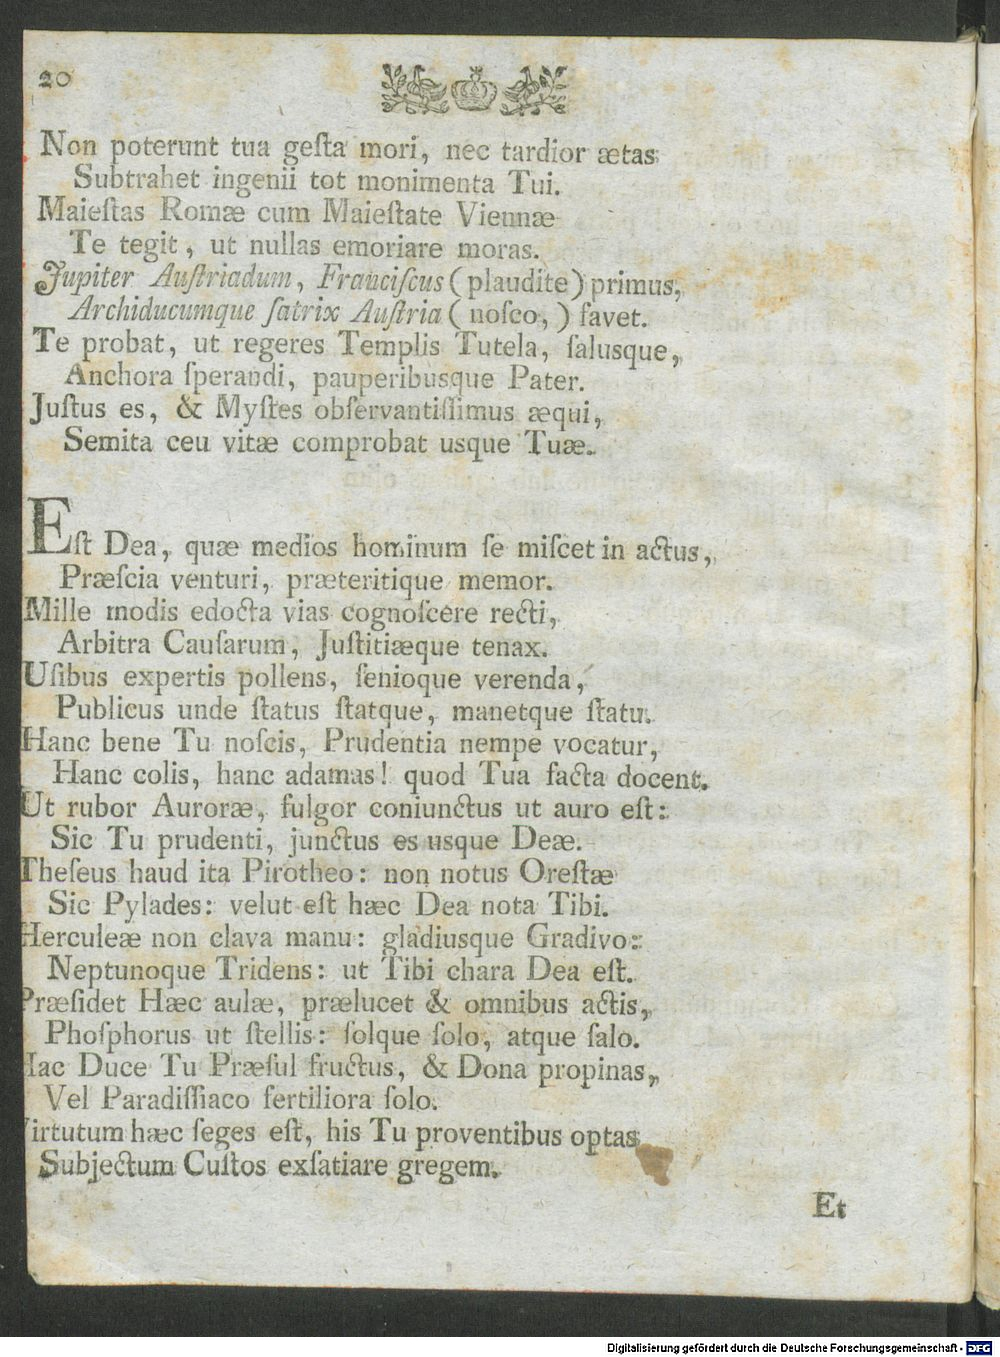 20
Non poterunt tua geſta mori, nec tardior ætas
Subtrahet ingenii tot monimenta Tui.
Maieſtas Romæ cum Maieſtate Viennæ
Te tegit, ut nullas emoriare moras.
Jupiter Auſtriadum, Franciſcus (plaudite) primus,
Archiducumque ſatrix Auſtria (noſco,) favet.
Te probat, ut regeres Templis Tutela, ſalusque,
Anchora ſperandi, pauperibusque Pater.
Juſtus es, & Myſtes obſervantiſſimus æqui,
Semita ceu vitæ comprobat usque Tuæ.
Eſt Dea, quæ medios hominum ſe miſcet in actus,
Præſcia venturi, præteritique memor.
Mille modis edocta vias cognoſcere recti,
Arbitra Cauſarum, Juſtitiæque tenax.
Uſibus expertis pollens, ſenioque verenda,
Publicus unde ſtatus ſtatque, manetque ſtatu.
Hanc bene Tu noſcis, Prudentia nempe vocatur,
Hanc colis, hanc adamas! quod Tua facta docent.
Ut rubor Auroræ, fulgor coniunctus ut auro eſt:
Sic Tu prudenti, junctus es usque Deæ.
Theſeus haud ita Pirotheo: non notus Oreſtæ
Sic Pylades: velut eſt hæc Dea nota Tibi.
Herculeæ non clava manu: gladiusque Gradivo:
Neptunoque Tridens: ut Tibi chara Dea eſt.
Præſidet Hæc aulæ, prælucet & omnibus actis,
Phoſphorus ut ſtellis: ſolque ſolo, atque ſalo.
Hac Duce Tu Præſul fructus, & Dona propinas,
Vel Paradiſſiaco fertiliora ſolo.
Virtutum hæc ſeges eſt, his Tu proventibus optas
Subjectum Cuſtos exſatiare gregem.
Et
Digitalisierung gefördert durch die Deutsche Forschungsgemeinschaft - DFG